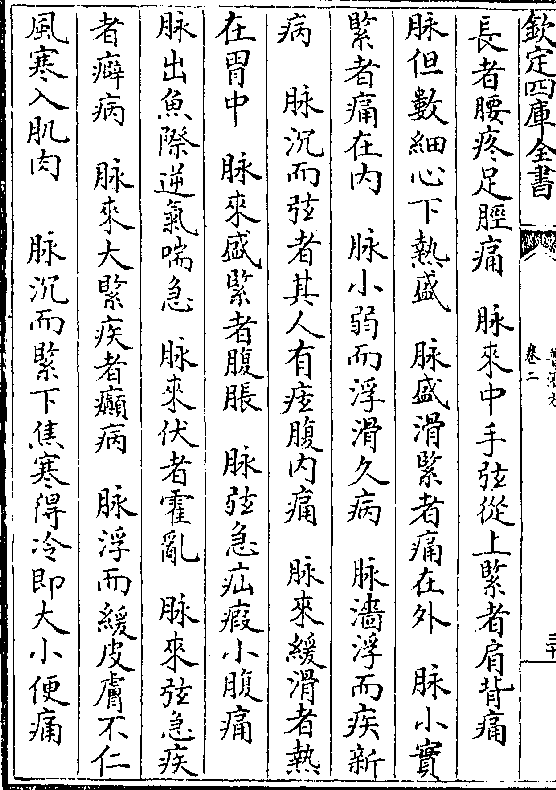 欽定四庫全書
卷二
長者腰疼足脛痛　脉來中手弦從上緊者肩背痛
脉但數細心下熱盛　脉盛滑緊者痛在外　脉小實
緊者痛在内　脉小弱而浮滑久病　脉濇浮而疾新
病　脉沉而弦者其人有痃腹内痛　脉來緩滑者熱
在胃中　脉來盛緊者腹脹　脉弦急疝瘕小腹痛
脉出魚際逆氣喘急　脉來伏者霍亂　脉來弦急疾
者癖病　脉來大緊疾者癲病　脉浮而緩皮膚不仁
風寒入肌肉　脉沉而緊下焦寒得冷即大小便痛